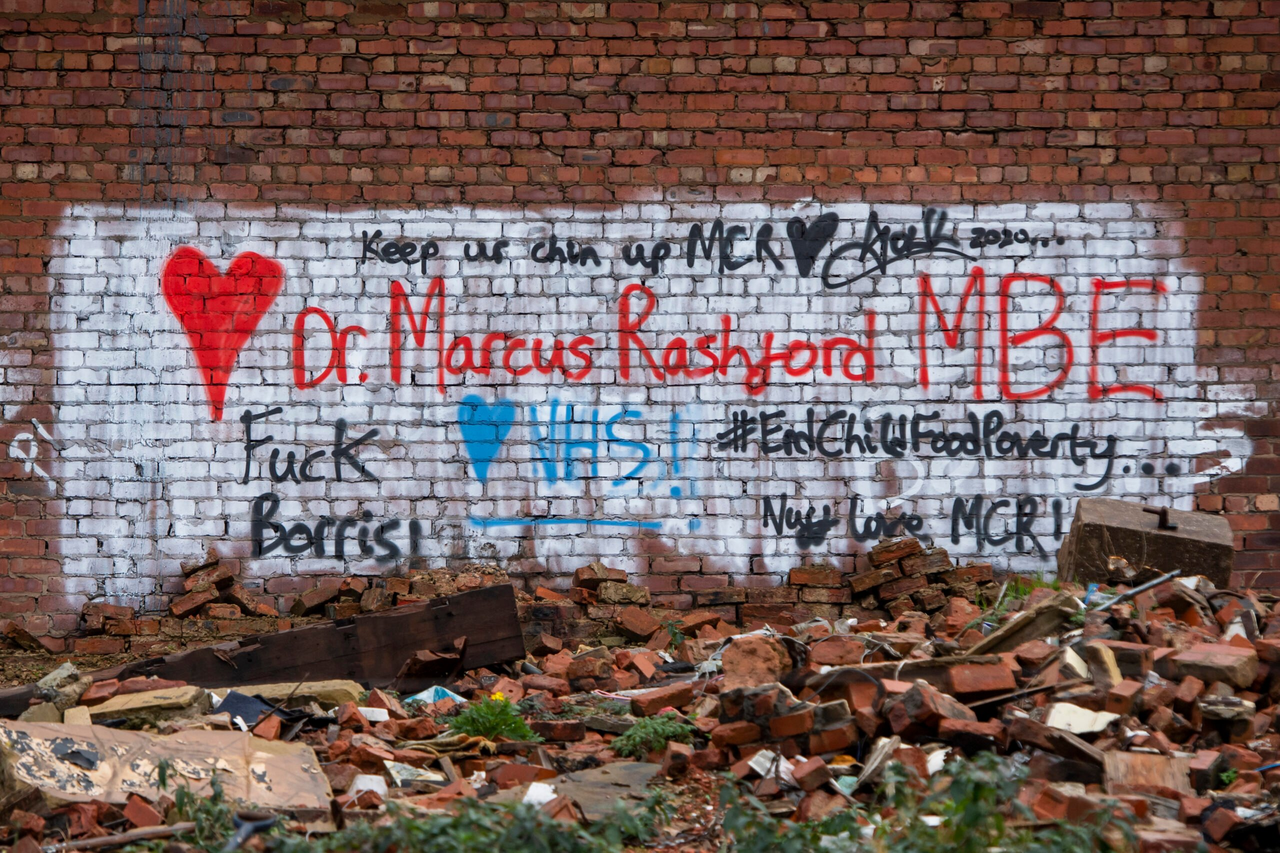 Keep ur chin up MCR 2020...
Dr. Marcus Rashford MBE
Fuck
Borris!
NHS!
#EndChildFoodPoverty...
Nuff Love MCR!!